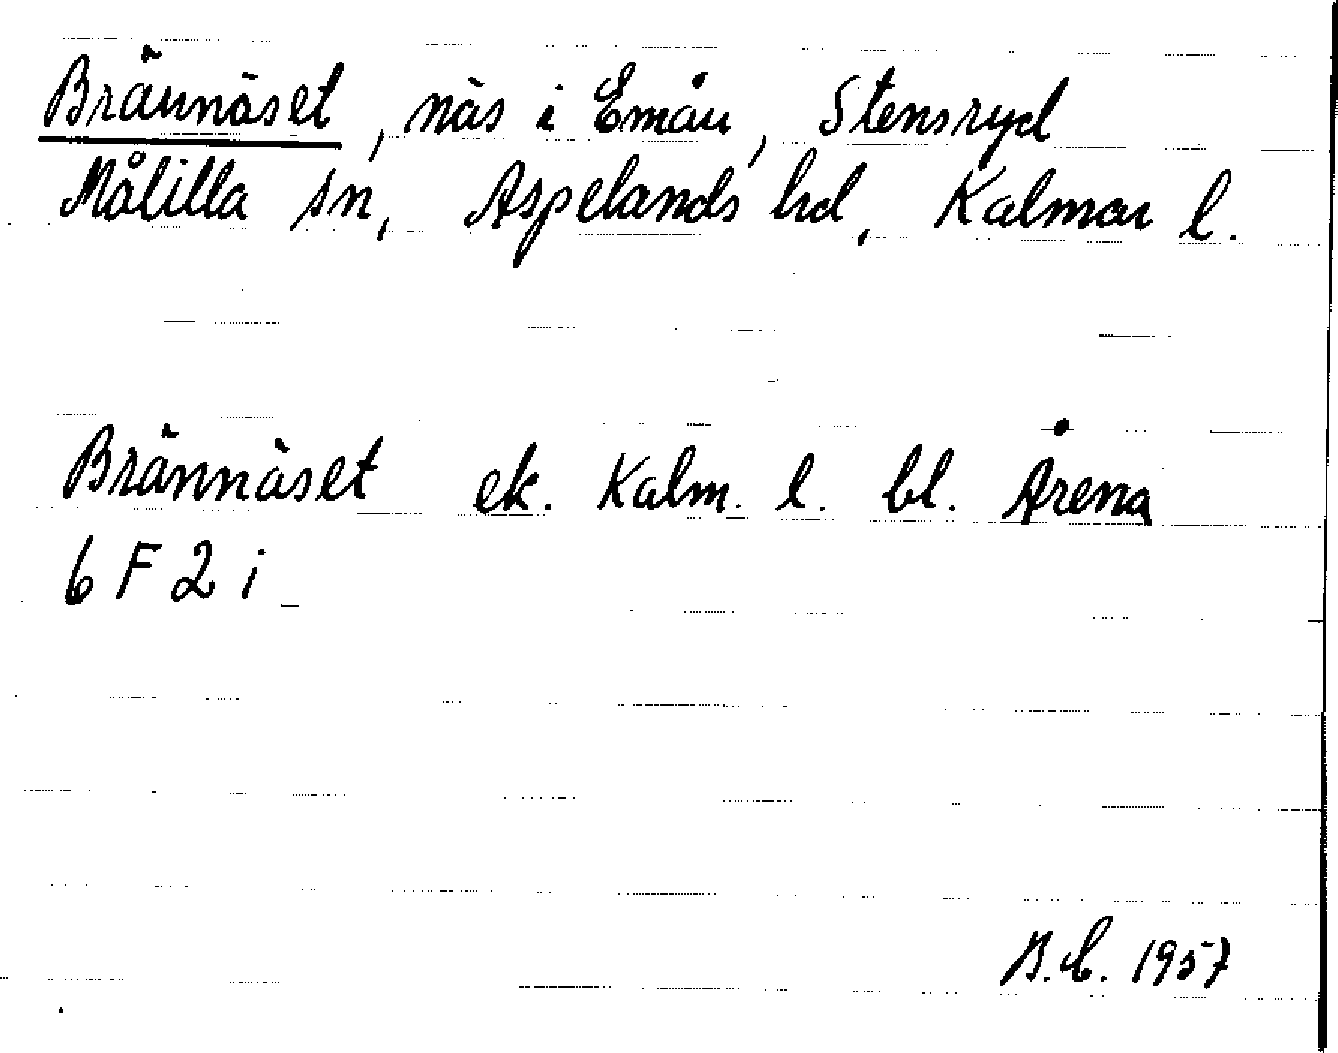 Brännäset, näs i Emån, Stensryd
Målilla sn, Aspelands hd, Kalmar l.
Brännäset ek. Kalm. l. bl. Årena
6 F 2 i
B.C. 1957